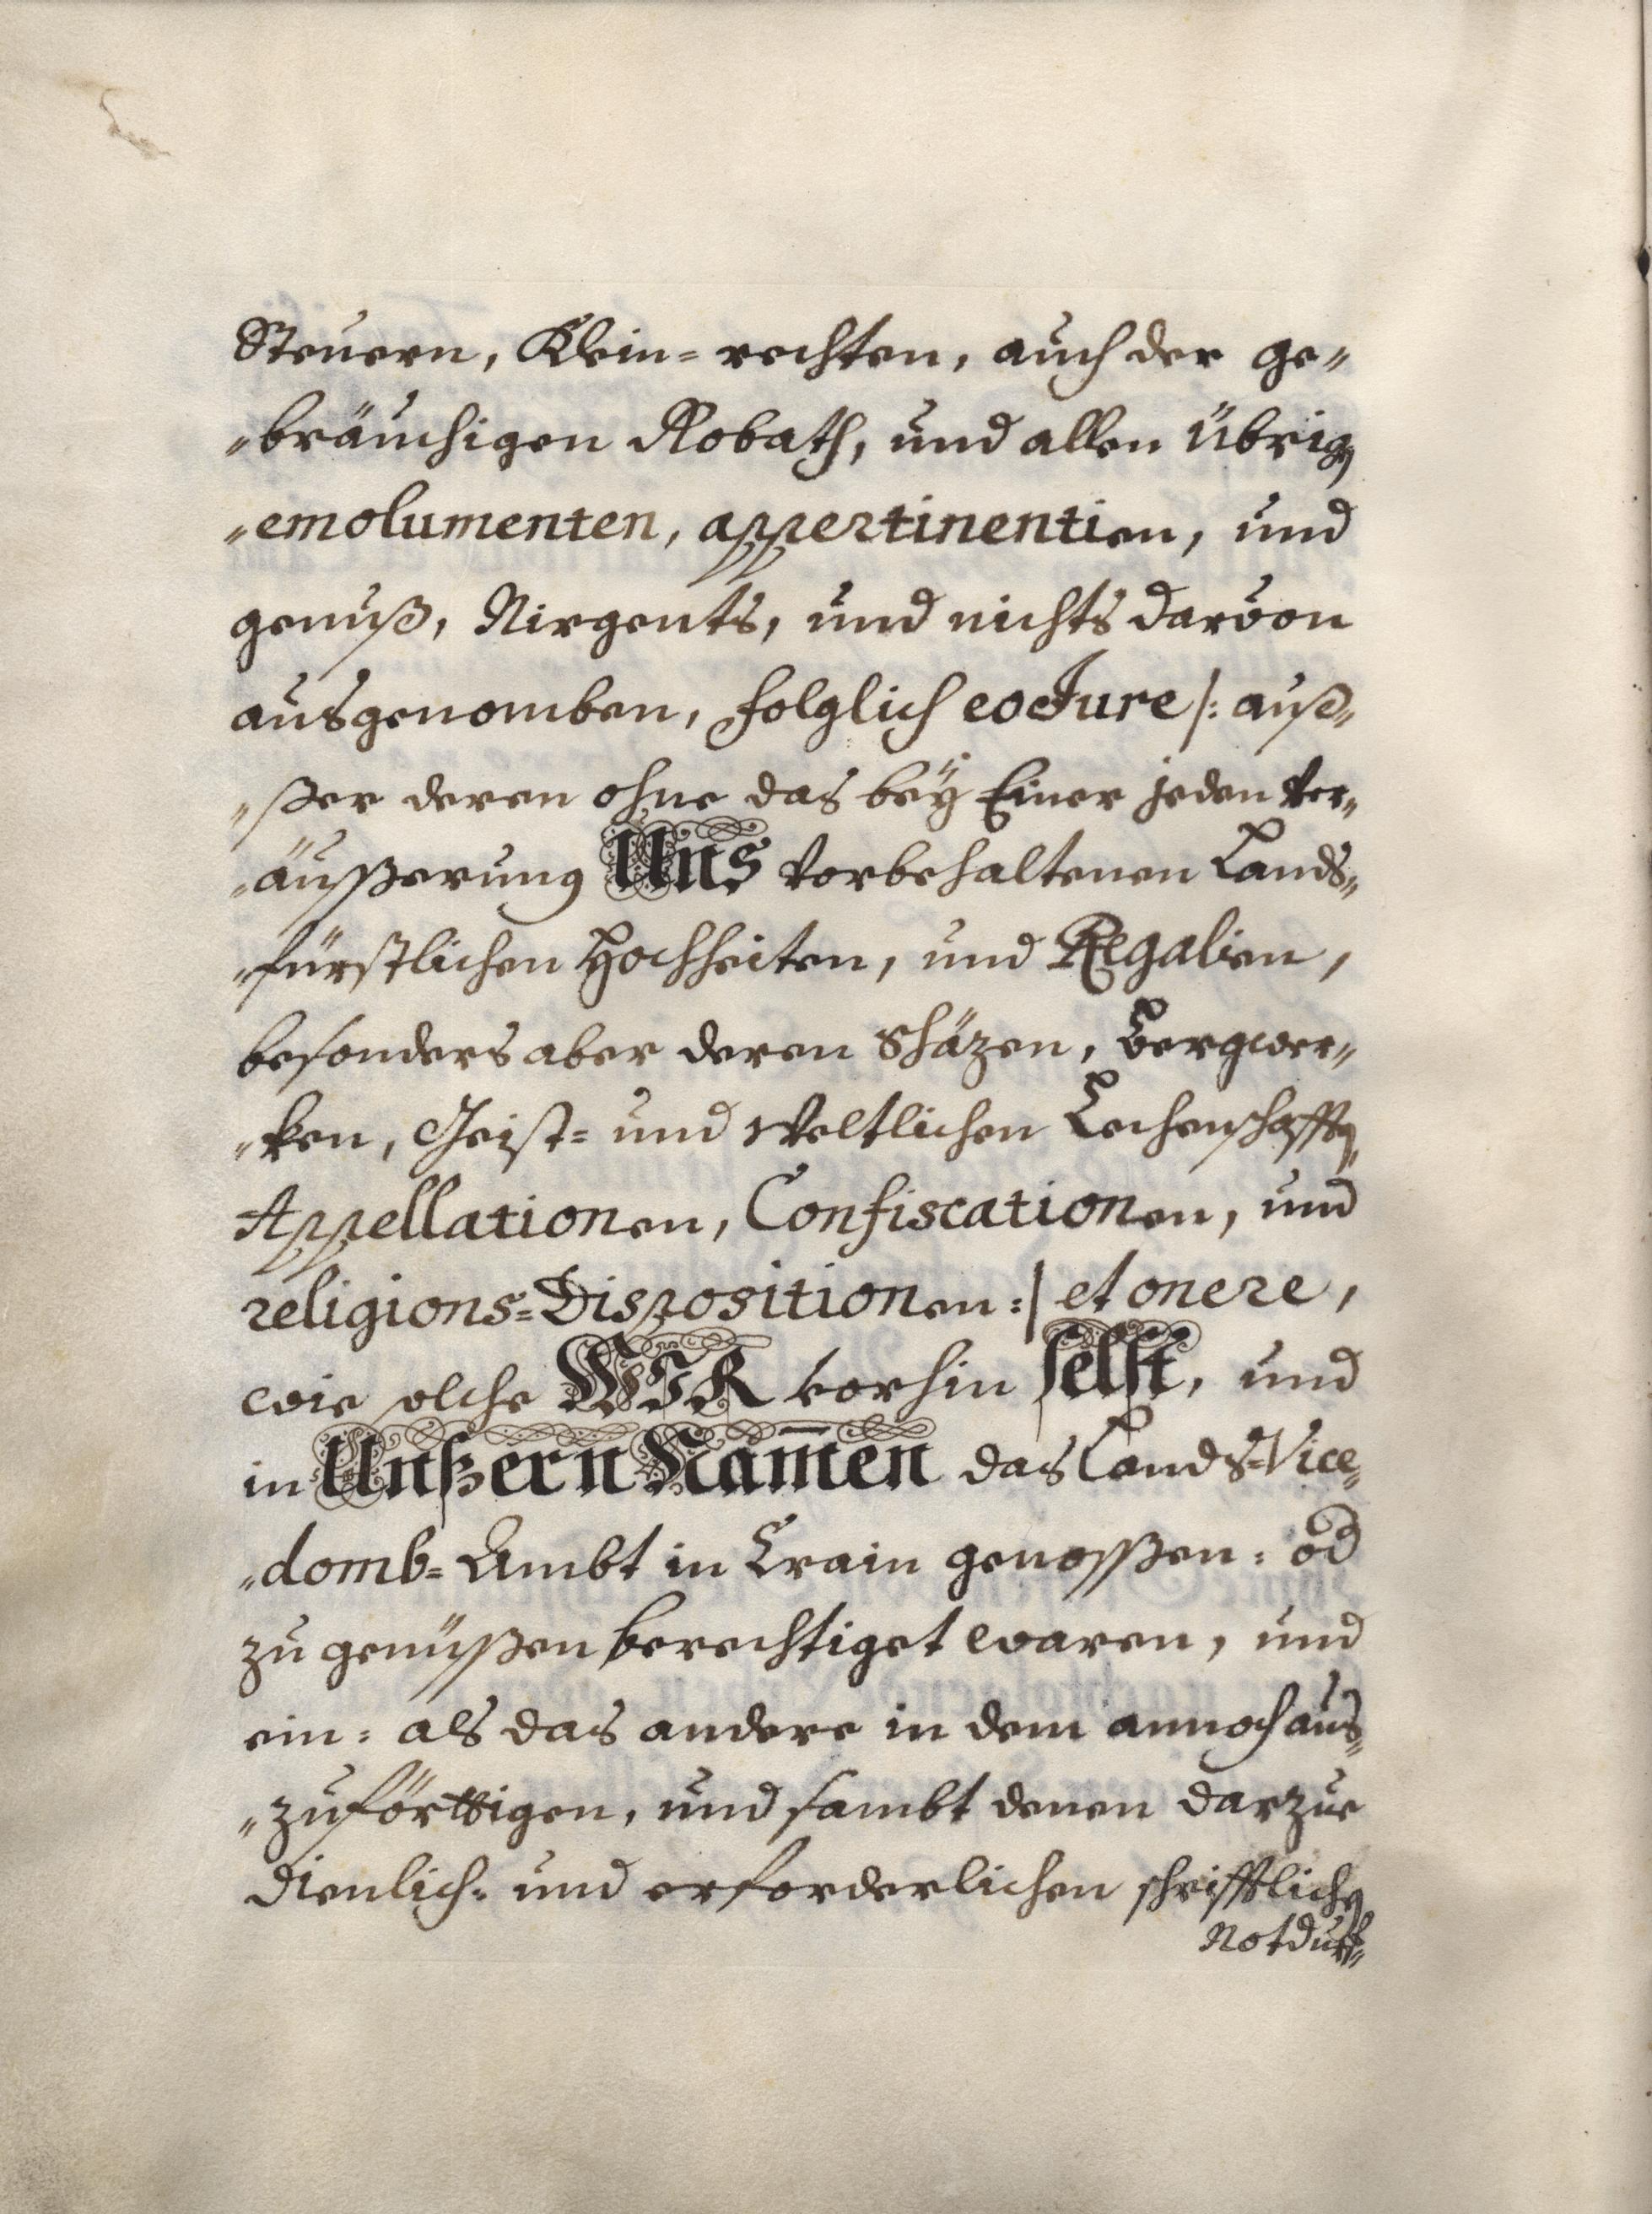 Steuern, Klein=rechten, auch der ge„
„bräuchigen Robath, und allen übrigen
„emolumenten, appertinentien, und
genuß, Nirgents, und nichts darvon
ausgenomben, folglich eo Jure /: auß„
„ßer deren ohne das beÿ Einer jeden Ver„
„äußßerung Uns Vorbehaltenen Lands„
„fürstlichen Hochheiten, und Regalien,
besonders aber deren Shäzen, Bergwer„
„ken, Geist= und Weltlichen Lechenschafften
Appellationen, Confiscationen, und
religions=Dispositionen :/ et onere,
wie olche WIR vorhin selst, und
in Unßern Namen das Lands=Vice„
„domb=Ambt in Crain genosßen: od
zu genüsßen berechtiget waren, und
ein: als das andere in dem annoch aus„
„zuförttigen, und sambt denen darzue
dienlich: und erforderlichen schrifftlichen
Notdurf„